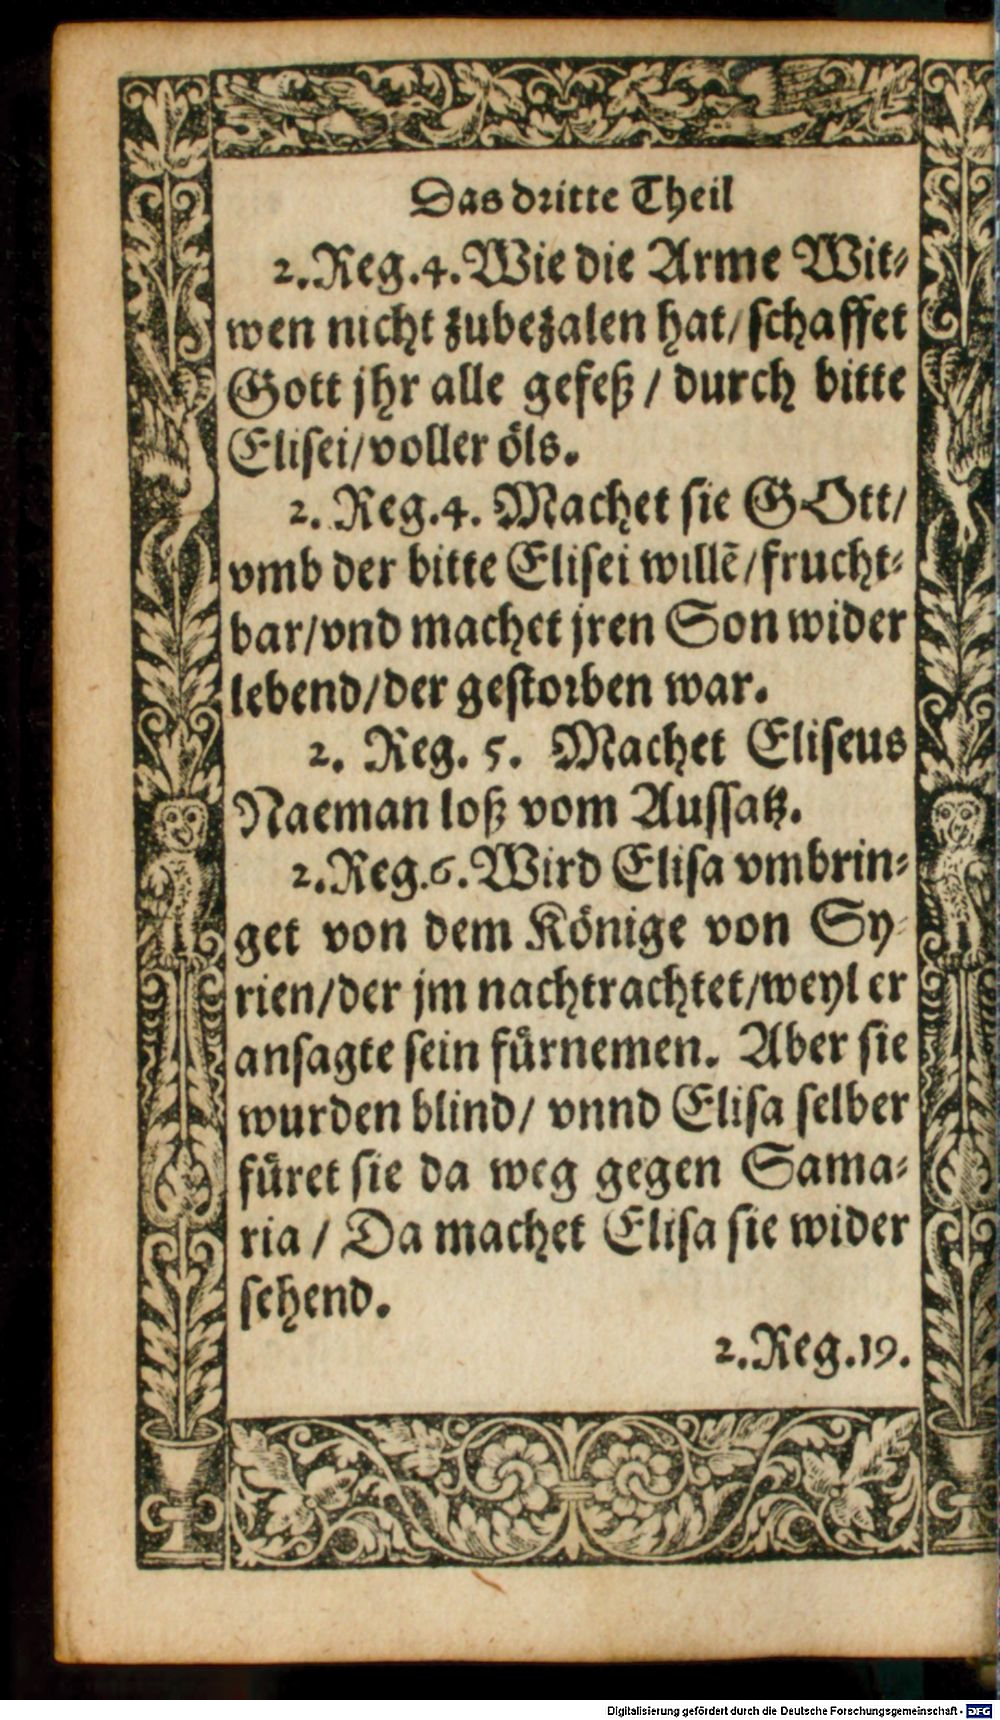 Das dritte Theil
2.Reg.4.Wie die Arme Wit-
wen nicht zubezalen hat/schaffet
Gott jhr alle gefeß / durch bitte
Elisei/voller öls.
2. Reg.4. Machet sie GOtt/
vmb der bitte Elisei willē/frucht-
bar/vnd machet jren Son wider
lebend/der gestorben war.
2. Reg. 5. Machet Eliseus
Naeman loß vom Aussatz.
2.Reg.6.Wird Elisa vmbrin-
get von dem Könige von Sy-
rien/der jm nachtrachtet/weyl er
ansagte sein fürnemen. Aber sie
wurden blind/ vnnd Elisa selber
füret sie da weg gegen Sama-
ria / Da machet Elisa sie wider
sehend.
2.Reg.19.
Digitalisierung gefördert durch die Deutsche Forschungsgemeinschaft - DFG